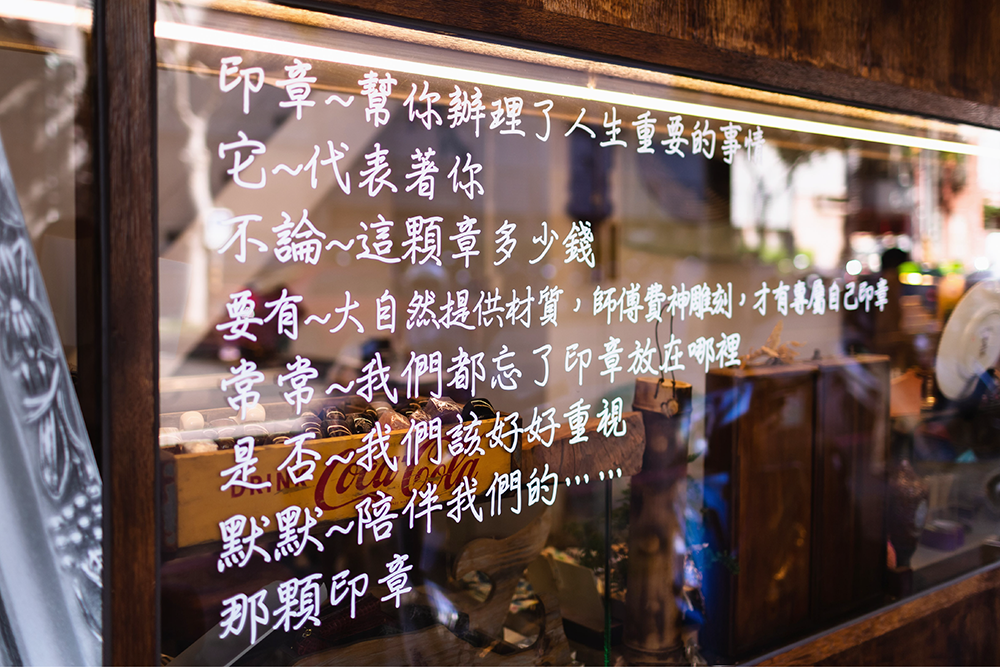 印章~幫你辦理了人生重要的事情
它~代表著你
不論~這顆章多少錢
要有~大自然提供材質，師傅費神雕刻，才有專屬自己印章
常常~我們都忘了印章放在哪裡
是否~我們該好好重視
默默~陪伴我們的……
那顆印章
DRINK Coca-Cola